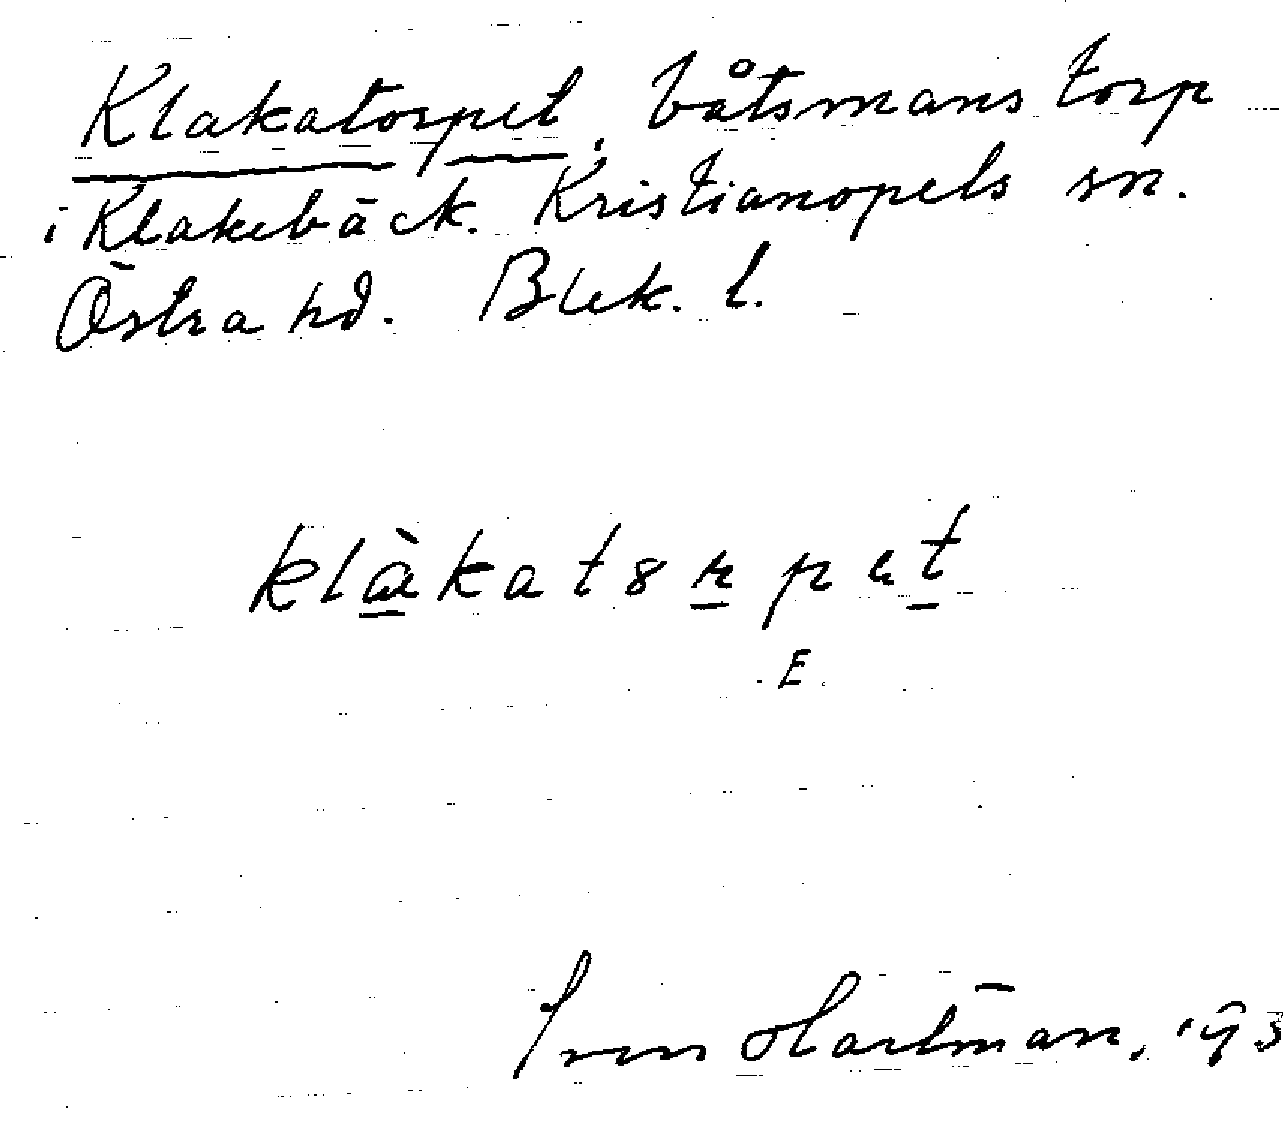 Klakatorpet, båtsmanstorp
i Klakebäck. Kristianopels sn.
Östra hd. Blek. l.
klàkatorpet
E.
Hartman,